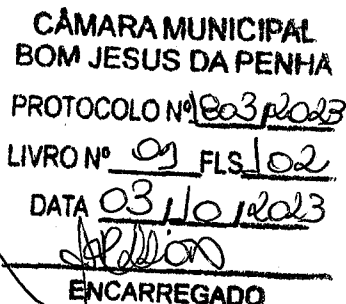 CÂMARA MUNICIPAL
BOM JESUS DA PENHA
PROTOCOLO Nº 1803/2023
LIVRO Nº 01 FLS 102
DATA 03/10/2023
ENCARREGADO